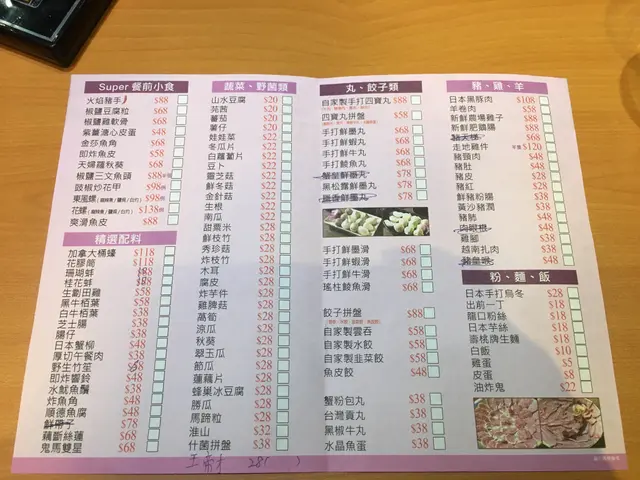 Super 餐前小食
火焰豬手 $88
椒鹽豆腐粒 $68
椒鹽雞軟骨 $68
紫薑溏心皮蛋 $48
金莎魚角 $68
即炸魚皮 $58
天婦羅秋葵 $68
椒鹽三文魚頭 $88
豉椒炒花甲 $98
東風螺 $98
花螺 $138
爽滑魚皮 $88
精選配料
加拿大桶蠔 $118
花膠筒 $118
珊瑚蚌
桂花蚌
生劏田雞 $58
黑牛栢葉 $38
白牛栢葉 $38
芝士腸 $38
腸仔 $38
日本蟹柳 $48
厚切午餐肉 $38
野生竹笙
即炸響鈴 $48
水魷魚鬚 $38
炸魚角 $48
順德魚腐 $48
鮮帶子 $78
藕斷絲蓮 $68
鬼馬雙星 $68
蔬菜、野菌類
山水豆腐 $20
茼茜 $20
蕃茄 $20
薯仔 $20
娃娃菜 $22
冬瓜片 $22
白蘿蔔片 $22
豆卜 $22
靈芝菇 $22
鮮冬菇 $22
金針菇 $22
生根 $22
南瓜 $22
甜粟米 $28
鮮枝竹 $28
秀珍菇 $28
炸枝竹 $28
木耳 $28
腐皮 $28
炸芋件 $28
雞脾菇 $28
萵筍 $28
涼瓜 $28
秋葵 $28
翠玉瓜 $28
節瓜 $28
蓮藕片 $28
蜂巢冰豆腐 $28
勝瓜 $28
馬蹄粒 $28
淮山 $32
什菌拼盤 $38
丸、餃子類
自家製手打四寶丸 $88
四寶丸拼盤 $58
手打鮮墨丸 $68
手打鮮蝦丸 $68
手打鮮牛丸 $68
手打鯪魚丸 $68
$78
黑松露鮮墨丸 $78
$78
手打鮮墨滑 $68
手打鮮蝦滑 $68
手打鮮牛滑 $68
瑤柱鯪魚滑 $68
餃子拼盤 $88
自家製雲吞 $58
自家製水餃 $58
自家製韭菜餃 $58
魚皮餃 $48
蟹粉包丸 $38
台灣貢丸 $38
黑椒牛丸 $38
水晶魚蛋 $38
豬、雞、羊
日本黑豚肉 $108
羊卷肉 $58
新鮮農場雞子 $88
新鮮肥鵝腸 $88
豬天梯 $68
走地雞件 $120
豬頸肉 $48
豬肚 $48
豬皮 $28
豬紅 $28
鮮豬粉腸 $38
黃沙豬潤 $38
豬肺 $48
$48
雞腳 $38
越南扎肉 $38
$48
粉、麵、飯
日本手打烏冬 $28
出前一丁 $18
龍口粉絲 $18
日本芋絲 $18
壽桃牌生麵 $18
白飯 $10
雞蛋 $5
皮蛋 $8
油炸鬼 $22